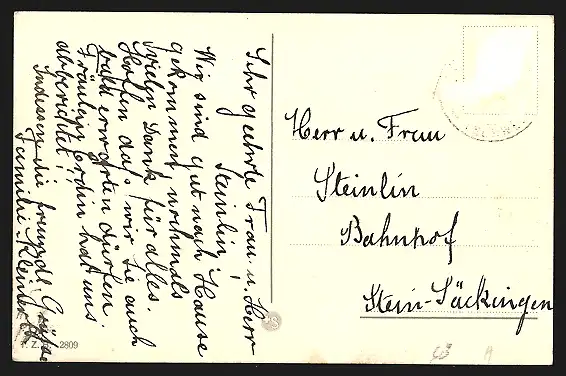 Sehr geehrte Frau u. Herr
Steinlin!
Wir sind gut nach Hause
gekommen, nochmals
vielen Dank für alles.
Hoffen das wir sie auch
bald erwarten dürfen.
Fräulein hat uns
abberichtet!
Indessen die freundl. Grüsse
Familie
Z. 2809
Herr u. Frau
Steinlin
Bahnhof
Stein-Säckingen